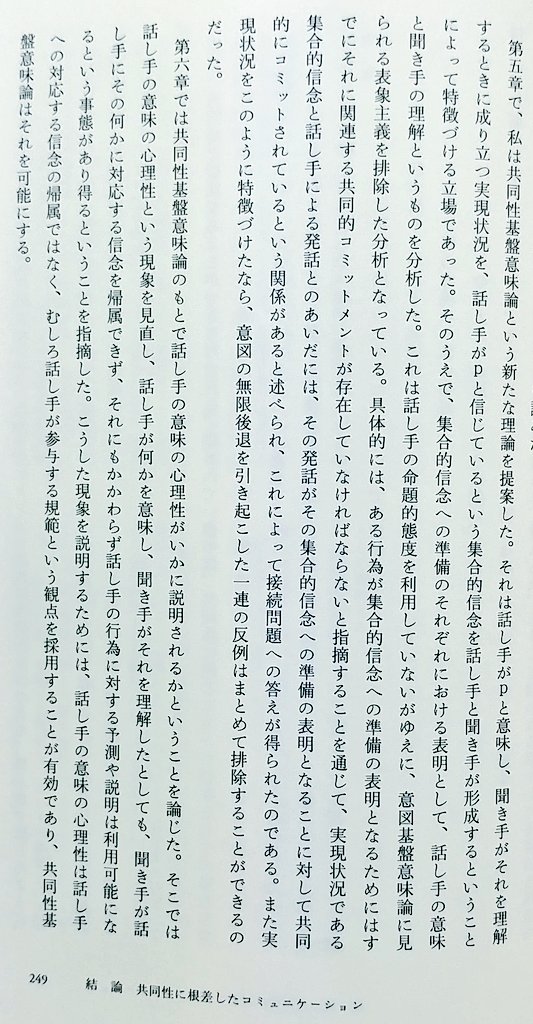 第五章で、私は共同性基盤意味論という新たな理論を提案した。それは話し手がpと意味し、聞き手がそれを理解
するときに成り立つ実現状況を、話し手がpと信じているという集合的信念を話し手と聞き手が形成するということ
によって特徴づける立場であった。そのうえで、集合的信念への準備のそれぞれにおける表明として、話し手の意味
と聞き手の理解というものを分析した。これは話し手の命題的態度を利用していないがゆえに、意図基盤意味論に見
られる表象主義を排除した分析となっている。具体的には、ある行為が集合的信念への準備の表明となるためにはす
でにそれに関連する共同的コミットメントが存在していなければならないと指摘することを通じて、実現状況である
集合的信念と話し手による発話とのあいだには、その発話がその集合的信念への準備の表明となることに対して共同
的にコミットされているという関係があると述べられ、これによって接続問題への答えが得られたのである。また実
現状況をこのように特徴づけたなら、意図の無限後退を引き起こした一連の反例はまとめて排除することができるの
だった。
第六章では共同性基盤意味論のもとで話し手の意味の心理性がいかに説明されるかということを論じた。そこでは
話し手の意味の心理性という現象を見直し、話し手が何かを意味し、聞き手がそれを理解したとしても、聞き手が話
し手にその何かに対応する信念を帰属できず、それにもかかわらず話し手の行為に対する予測や説明は利用可能にな
るという事態があり得るということを指摘した。こうした現象を説明するためには、話し手の意味の心理性は話し手
への対応する信念の帰属ではなく、むしろ話し手が参与する規範という観点を採用することが有効であり、共同性基
盤意味論はそれを可能にする。
249 結論 共同性に根差したコミュニケーション